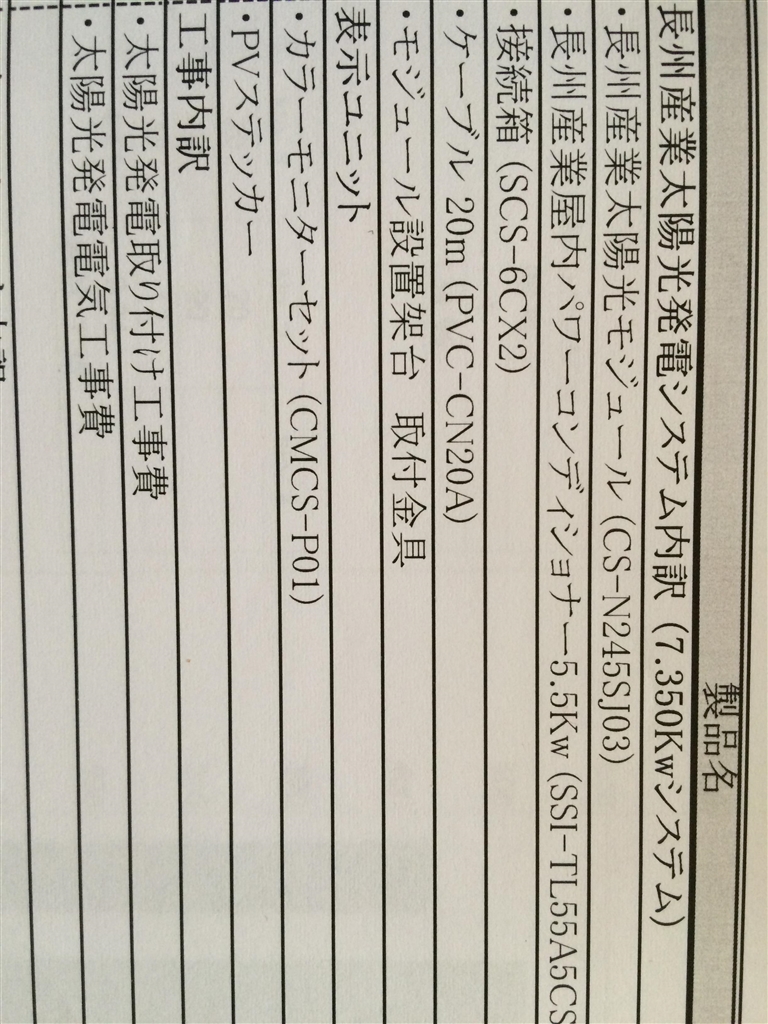 製品名
長州産業太陽光発電システム内訳 (7.350Kwシステム)
・長州産業太陽光モジュール (CS-N245SJ03)
・長州産業屋内パワーコンディショナー5.5Kw (SSI-TL55A5CS
・接続箱 (SCS-6CX2)
・ケーブル 20m (PVC-CN20A)
・モジュール設置架台 取付金具
表示ユニット
・カラーモニターセット (CMCS-P01)
・PVステッカー
工事内訳
・太陽光発電取り付け工事費
・太陽光発電電気工事費